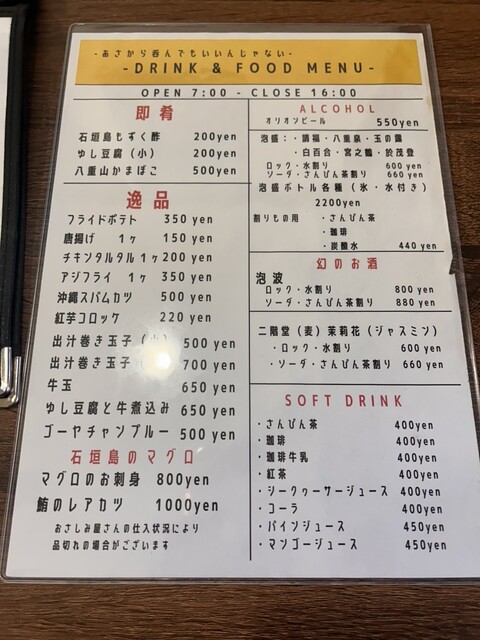 -あさから呑んでもいいんじゃない-
-DRINK & FOOD MENU-
OPEN 7:00 - CLOSE 16:00
即肴
石垣島もずく酢 200yen
ゆし豆腐(小) 200yen
八重山かまぼこ 500yen
逸品
フライドポテト 350 yen
唐揚げ 1ヶ 150 yen
チキンタルタル1ヶ 200 yen
アジフライ 1ヶ 350 yen
沖縄スパムカツ 500 yen
紅芋コロッケ 220 yen
出汁巻き玉子(小) 500 yen
出汁巻き玉子 700 yen
牛玉 650 yen
ゆし豆腐と牛煮込み 650 yen
ゴーヤチャンプルー 500 yen
石垣島のマグロ
マグロのお刺身 800yen
鮪のレアカツ 1000yen
おさしみ屋さんの仕入状況により
品切れの場合がございます
ALCOHOL
オリオンビール 550yen
泡盛:・請福・八重泉・玉の露
・白百合・宮之鶴・於茂登
ロック・水割り 600 yen
ソーダ・さんぴん茶割り 660 yen
泡盛ボトル各種(氷・水付き)
2200yen
割りもの用 ・さんぴん茶
・珈琲
・炭酸水 440 yen
幻のお酒
泡波
ロック・水割り 800 yen
ソーダ・さんぴん茶割り 880 yen
二階堂(麦)茉莉花(ジャスミン)
・ロック・水割り 600 yen
・ソーダ・さんぴん茶割り 660 yen
SOFT DRINK
・さんぴん茶 400yen
・珈琲 400yen
・珈琲牛乳 400yen
・紅茶 400yen
・シークヮーサージュース 400yen
・コーラ 400yen
・パインジュース 450yen
・マンゴージュース 450yen